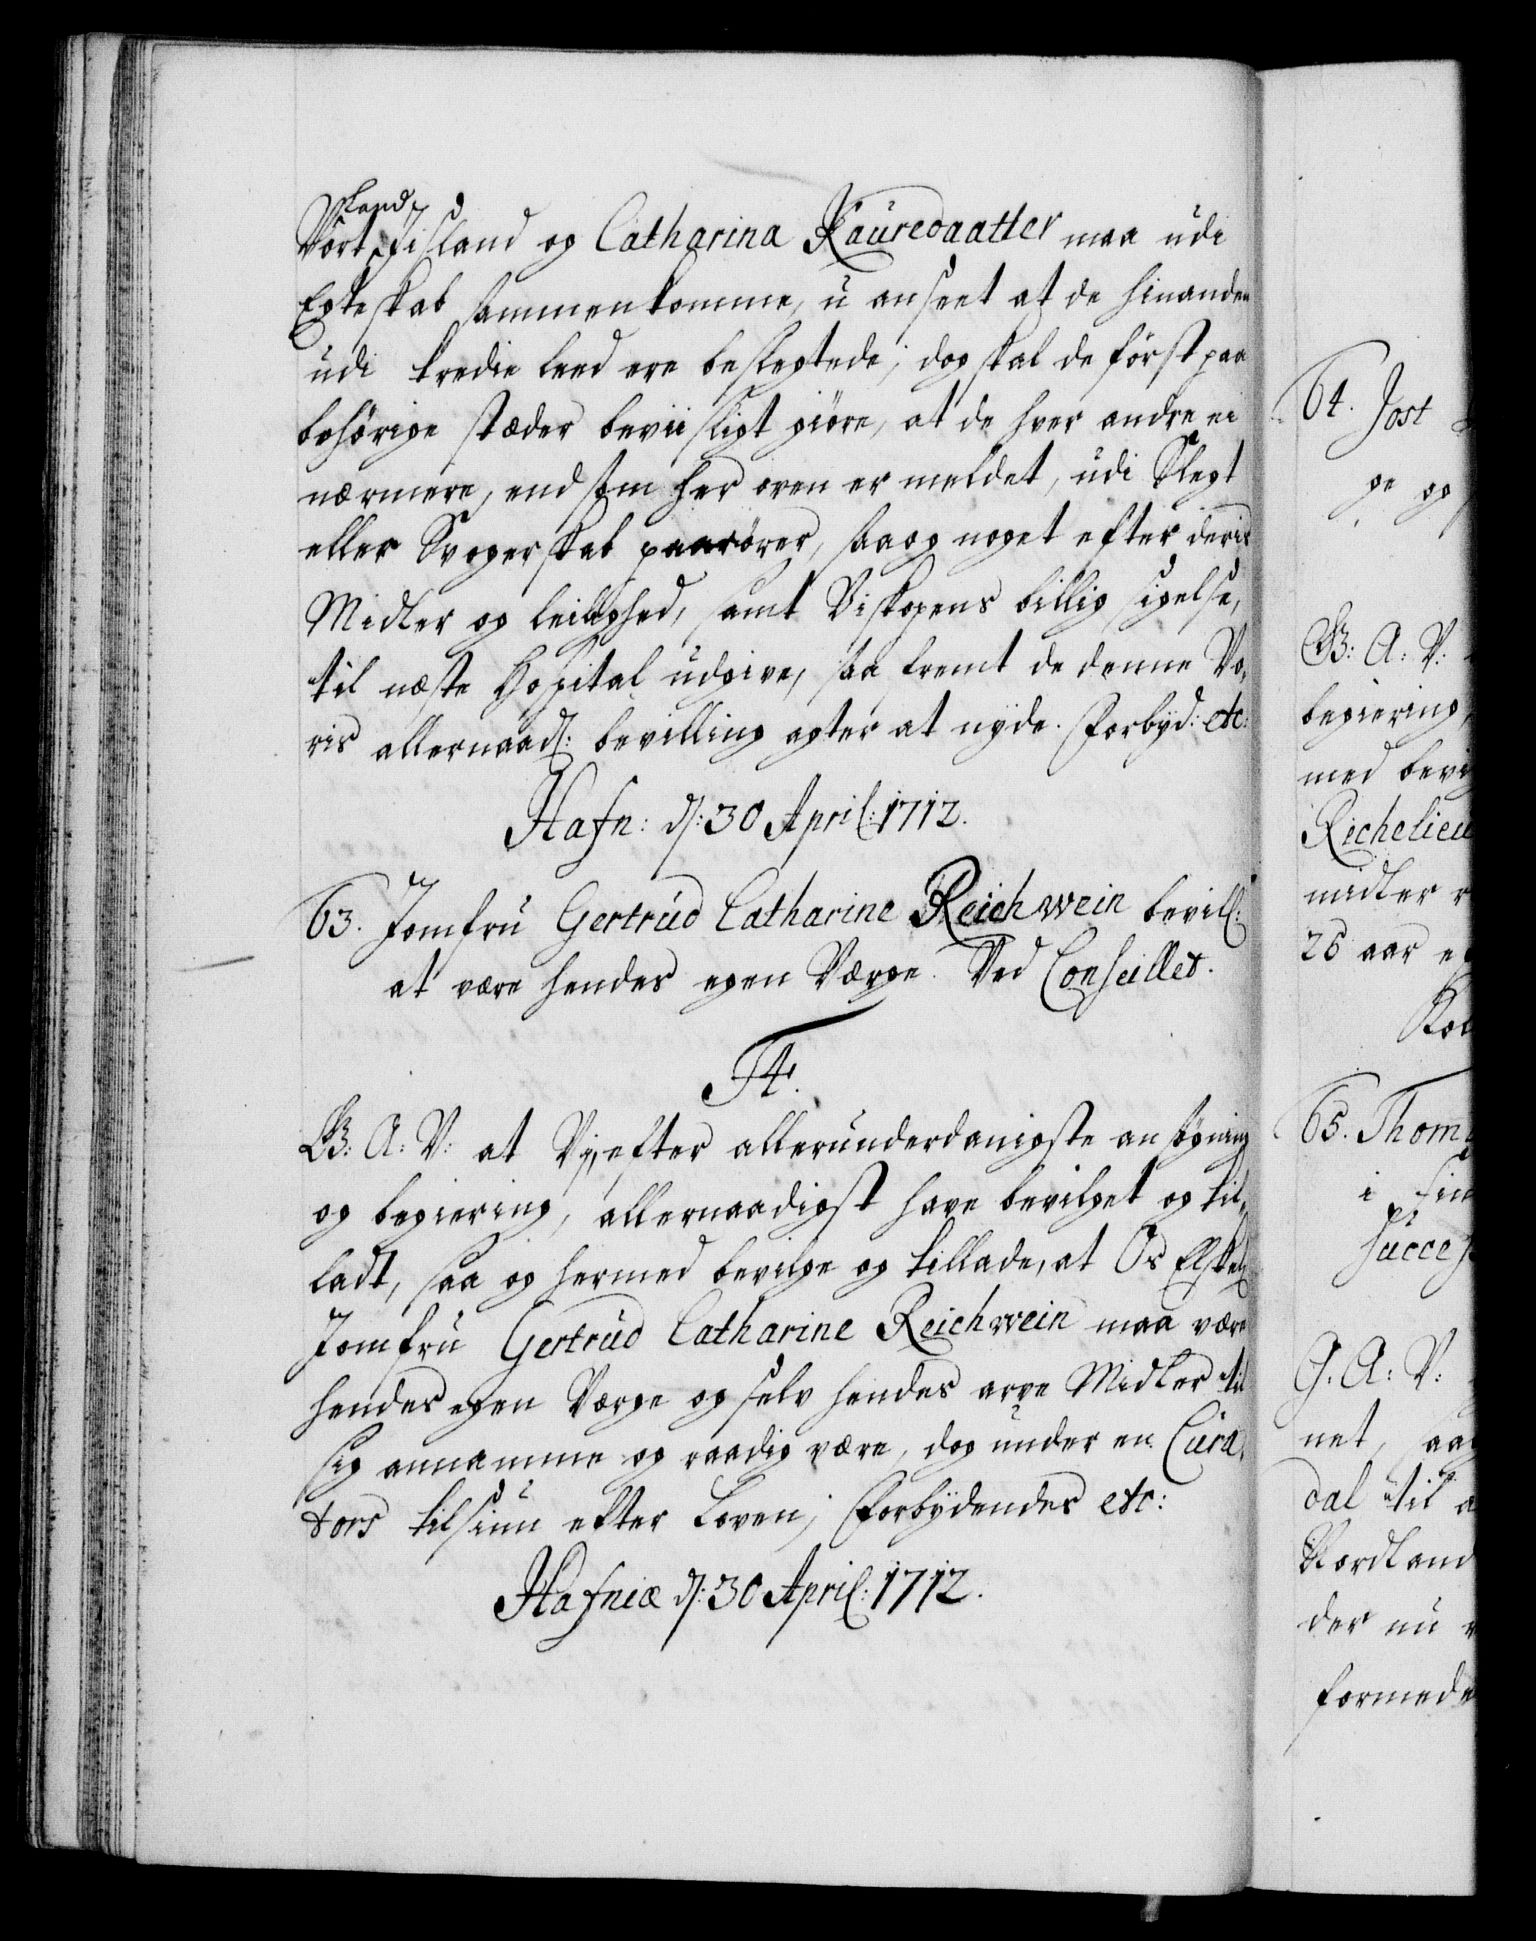 Land
Vort Jisland og Catharina Kauredaatter maa udi
Egteskab sammenkomme, u anseet at de hinanden
udi tredie leed ere beslegtede; dog skal de først paa
behørige stæder beviisligt giøre, at de hver andre ei
nærmere, end som her oven er meldet, udi Slegt
eller Svogerskab paarører, saa og noget efter deris
Midler og leilighed, samt Biskopens billig sigelse,
til næste Hospital udgive, saa fremt de denne Vo,
ris allernaad: bevilling agter at nyde. Forbyd: etc:
Hafn: d: 30 April: 1712.
63. Jomfru Gertrud Catharine Reichwein bevill:
at være hendes egen Værge. Ved Conseillet.
F4.
G: A: V: at Vi, efter allerunderdanigste ansøgning
og begiering, allernaadigst have bevilget og til,
ladt, saa og hermed bevilge og tillade, at Os Elskel:
Jomfru Gertrud Catharine Reichwein maa være
hendes egen Værge og selv hendes arve Midler til
sig annamme og raadig være, dog under en Cura,
tors tilsiun efter Loven; Forbydendes etc:
Hafniæ d: 30 April: 1712.
64. Jost
ge og
G: A: V:
begiering,
med bevi
Richelieu
midler
26 aar
65. Thom
i
succes
G. A: V:
net, saa
dal til
Nordland
der nu
formede